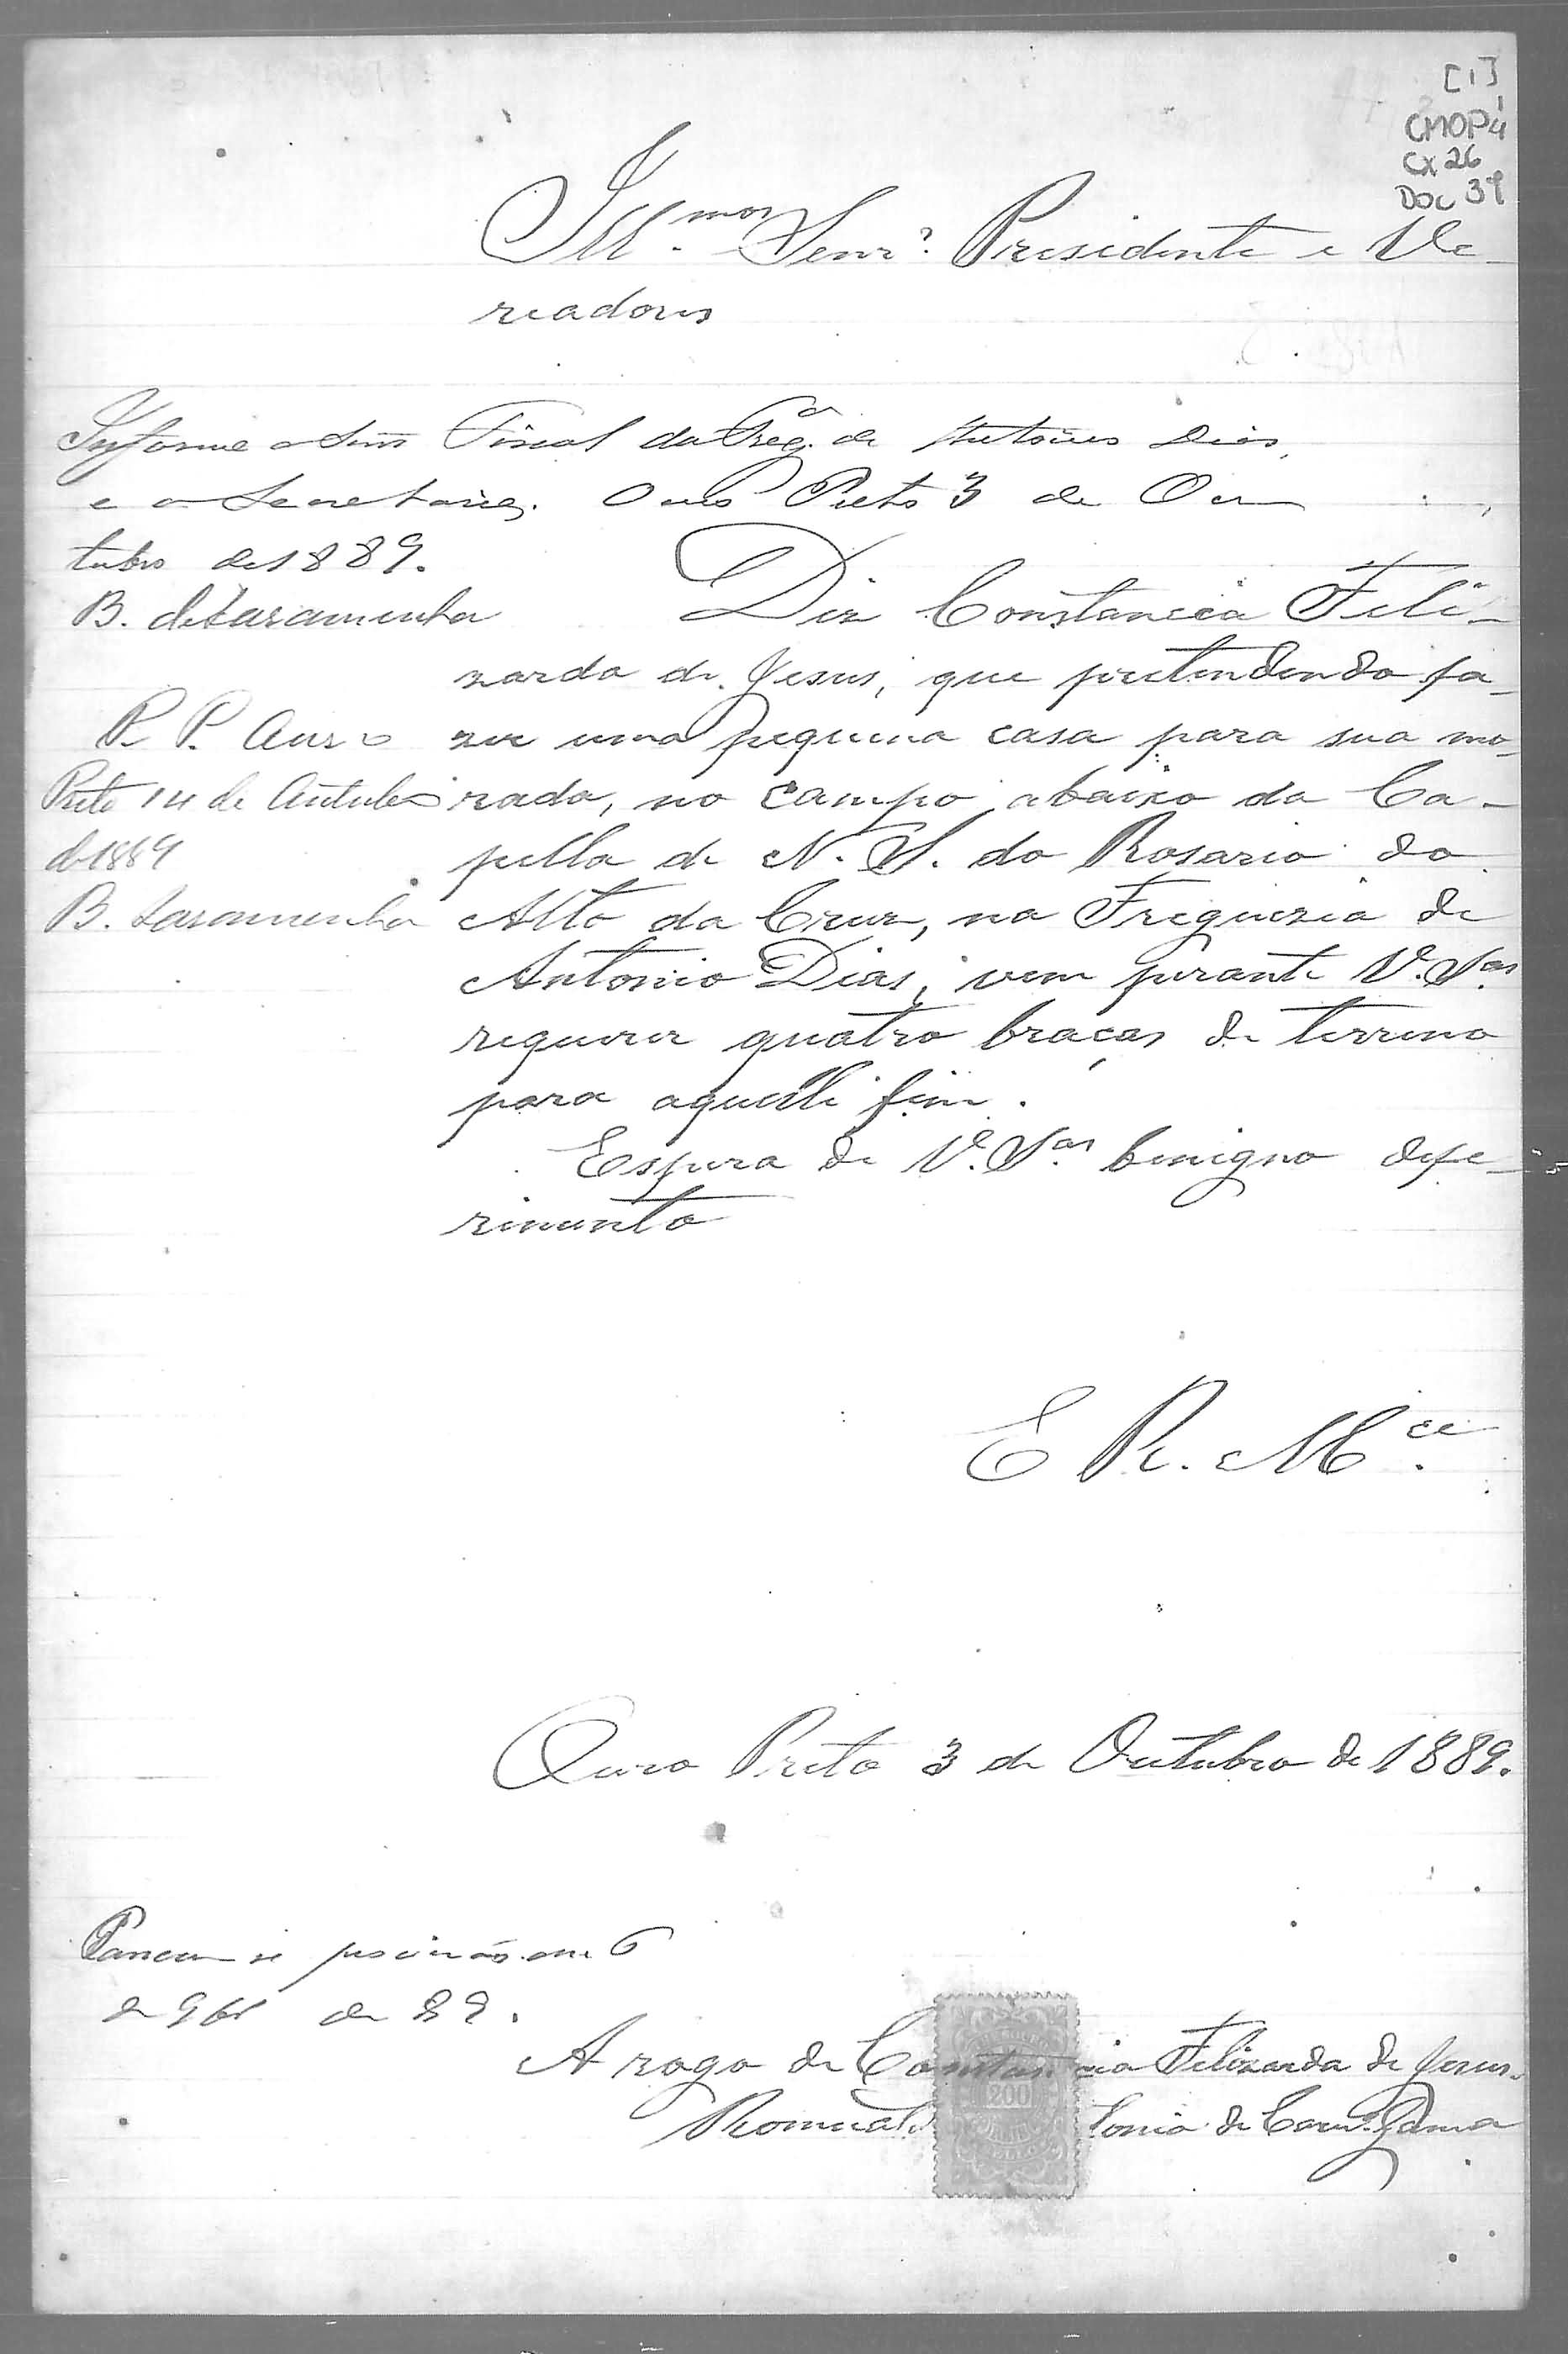 [1]
CMOP 4
CX 26
DOC 39
Ill.mos Senr.s Presidente e Ve-
readores
Informe o Snr Fiscal da Freg.a de Antonio Dias,
e o Secretario. Ouro Preto 3 de Ou
tubro de 1889.
B. de Saramenha
Diz Constancia Feli-
zarda de Jesus, que pretendendo fa-
zer uma pequena casa para sua mo-
rada, no campo abaixo da Ca-
pella de N. S. do Rosario do
Alto da Cruz, na Freguezia de
Antonio Dias, vem perante V. S.as
requerer quatro braças de terreno
para aquelle fim.
Espera de V. S.as benigno defe-
rimento
P. P. Ouro
Preto 14 de Outubro
de 1889
B. Saramenha
E R. M.ce
Ouro Preto 3 de Outubro de 1889.
6
de 9br de 89.
A rogo de Constancia Felizarda de Jesus.
200